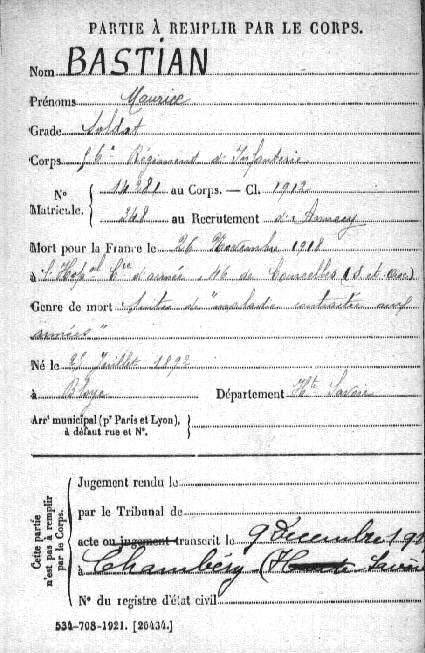 PARTIE À REMPLIR PAR LE CORPS.
Nom BASTIAN
Prénoms Maurice
Grade Soldat
Corps Régiment d'Infanterie
N° Matricule. { 14281 au Corps. — Cl. 1912
248 au Recrutement d'Annecy
Mort pour la France le 26 Novembre 1918
à l'Hop d'armée 46 de Courcelles
Genre de mort suites de "maladie contractée aux
armées"
Né le 25 Juillet 1892
à Bloye Département Hte Savoie
Arrt municipal (pr Paris et Lyon), à défaut rue et N°.
Cette partie n'est pas à remplir par le Corps.
Jugement rendu le
par le Tribunal de
acte ou jugement transcrit le 9 Décembre
à Chambéry (Haute Savoie
N° du registre d'état civil
534-708-1921. [26434.]